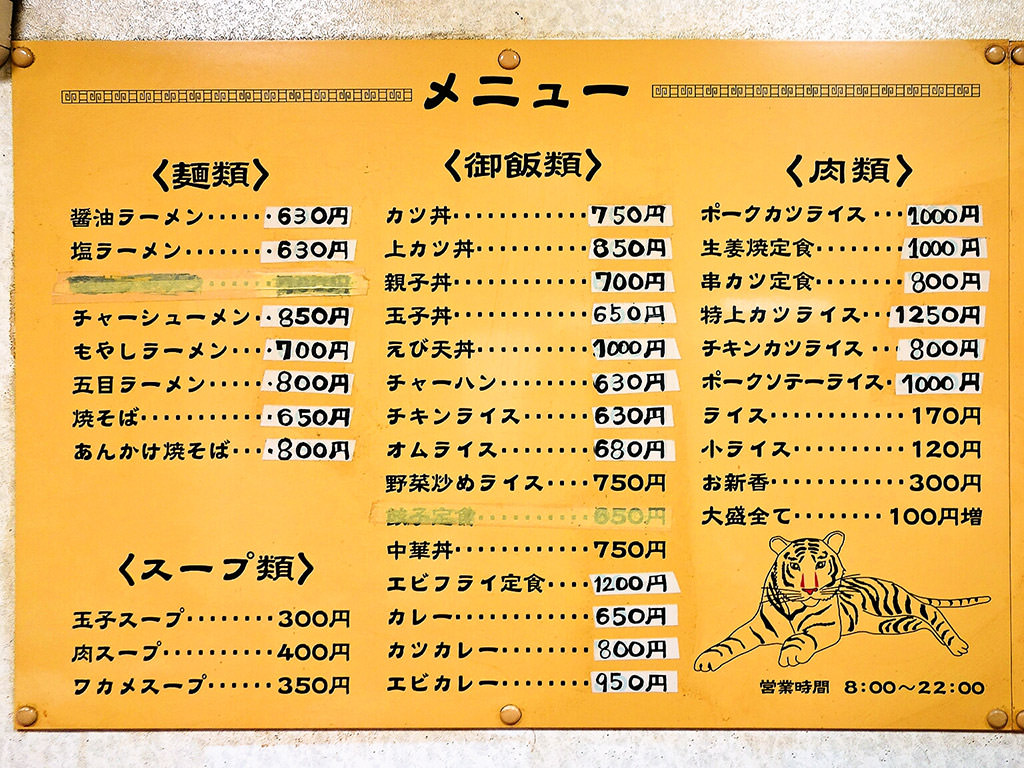 メニュー
〈麺類〉
醤油ラーメン・・・・・・630円
塩ラーメン・・・・・・630円
チャーシューメン・・850円
もやしラーメン・・・700円
五目ラーメン・・・・800円
焼そば・・・・・・・・・・・・650円
あんかけ焼そば・・・・800円
〈スープ類〉
玉子スープ・・・・・・・・300円
肉スープ・・・・・・・・・・400円
ワカメスープ・・・・・・350円
〈御飯類〉
カツ丼・・・・・・・・・・・・750円
上カツ丼・・・・・・・・・・850円
親子丼・・・・・・・・・・・・700円
玉子丼・・・・・・・・・・・・650円
えび天丼・・・・・・・・・・1000円
チャーハン・・・・・・・・630円
チキンライス・・・・・・630円
オムライス・・・・・・・・680円
野菜炒めライス・・・・750円
餃子定食・・・・・・・・・・650円
中華丼・・・・・・・・・・・・750円
エビフライ定食・・・・1200円
カレー・・・・・・・・・・・・650円
カツカレー・・・・・・・・800円
エビカレー・・・・・・・・950円
〈肉類〉
ポークカツライス・・・1000円
生姜焼定食・・・・・・・・1000円
串カツ定食・・・・・・・・800円
特上カツライス・・・1250円
チキンカツライス・・800円
ポークソテーライス・1000円
ライス・・・・・・・・・・・・170円
小ライス・・・・・・・・・・120円
お新香・・・・・・・・・・・・300円
大盛全て・・・・・・・・100円増
営業時間 8:00〜22:00